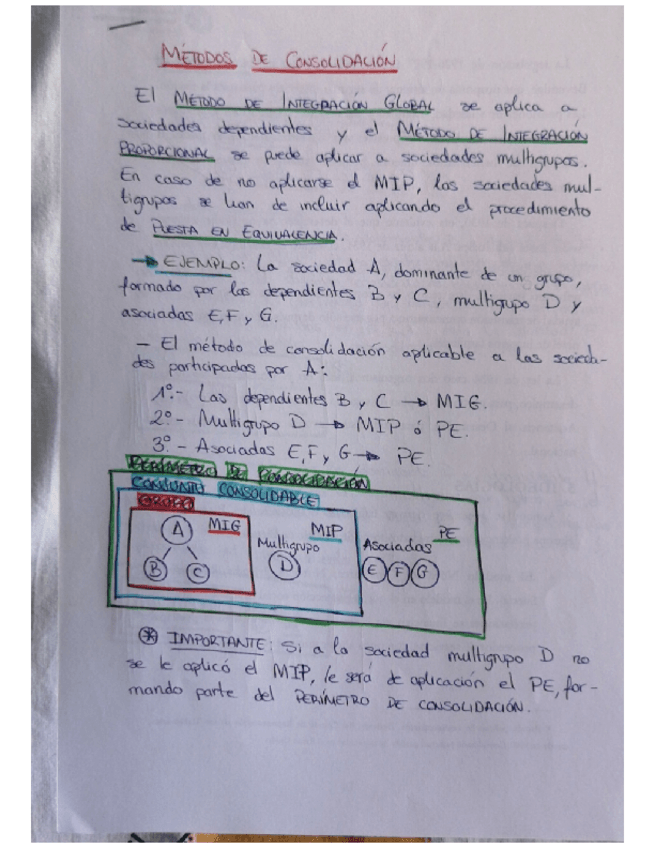 MÉTODOS DE CONSOLIDACIÓN
El MÉTODO DE INTEGRACIÓN GLOBAL se aplica a
sociedades dependientes y el MÉTODO DE INTEGRACIÓN
PROPORCIONAL se puede aplicar a sociedades multigrupos.
En caso de no aplicarse el MIP, las sociedades mul-
tigrupos se han de incluir aplicando el procedimiento
de PUESTA EN EQUIVALENCIA.
→ EJEMPLO: La sociedad A, dominante de un grupo,
formado por las dependientes B y C, multigrupo D y
asociadas E, F y G.
- El método de consolidación aplicable a las socieda-
des participadas por A:
1º.- Las dependientes B y C → MIG.
2º.- Multigrupo D → MIP ó PE.
3º.- Asociadas E, F y G → PE.
PERÍMETRO DE CONSOLIDACIÓN
CONJUNTO CONSOLIDABLE
GRUPO
A MIG
B C
MIP
Multigrupo
D
PE
Asociadas
E F G
* IMPORTANTE: Si a la sociedad multigrupo D no
se le aplicó el MIP, le será de aplicación el PE, for-
mando parte del PERÍMETRO DE CONSOLIDACIÓN.